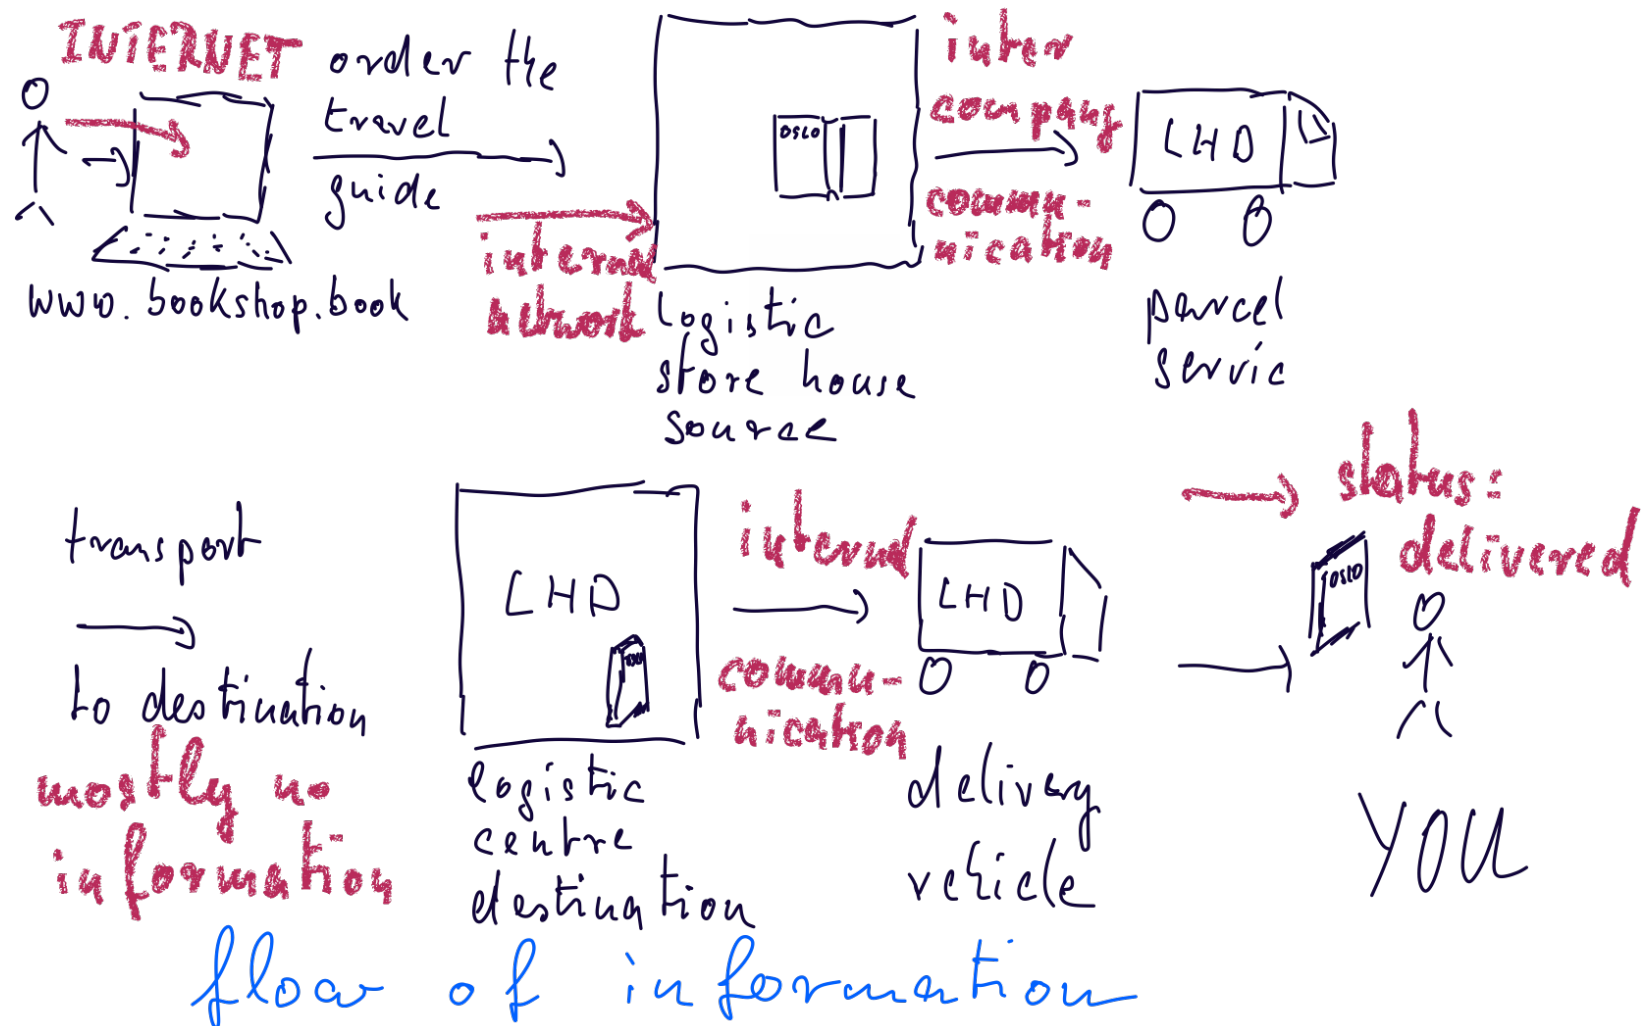 INTERNET
order the
travel
guide
www.bookshop.book
internal
network
OSLO
logistic
store house
source
inter
company
commu-
nication
LHD
parcel
servic
transport
to destination
mostly no
information
LHD
logistic
centre
destination
internal
commu-
nication
LHD
delivery
vehicle
status:
delivered
OSLO
YOU
flow of information